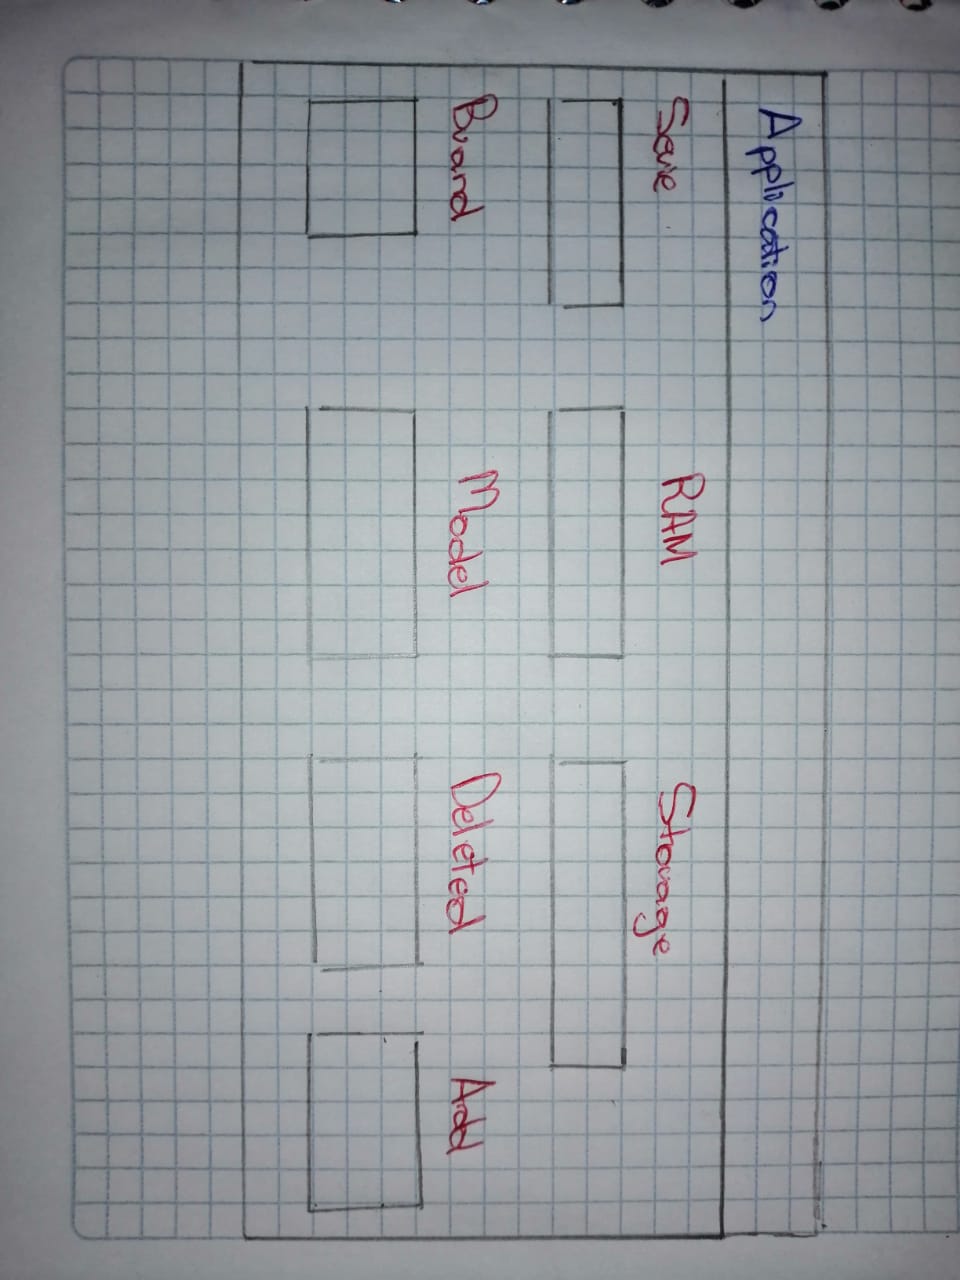 Application
Save RAM Storage
Brand Model Deleted Add